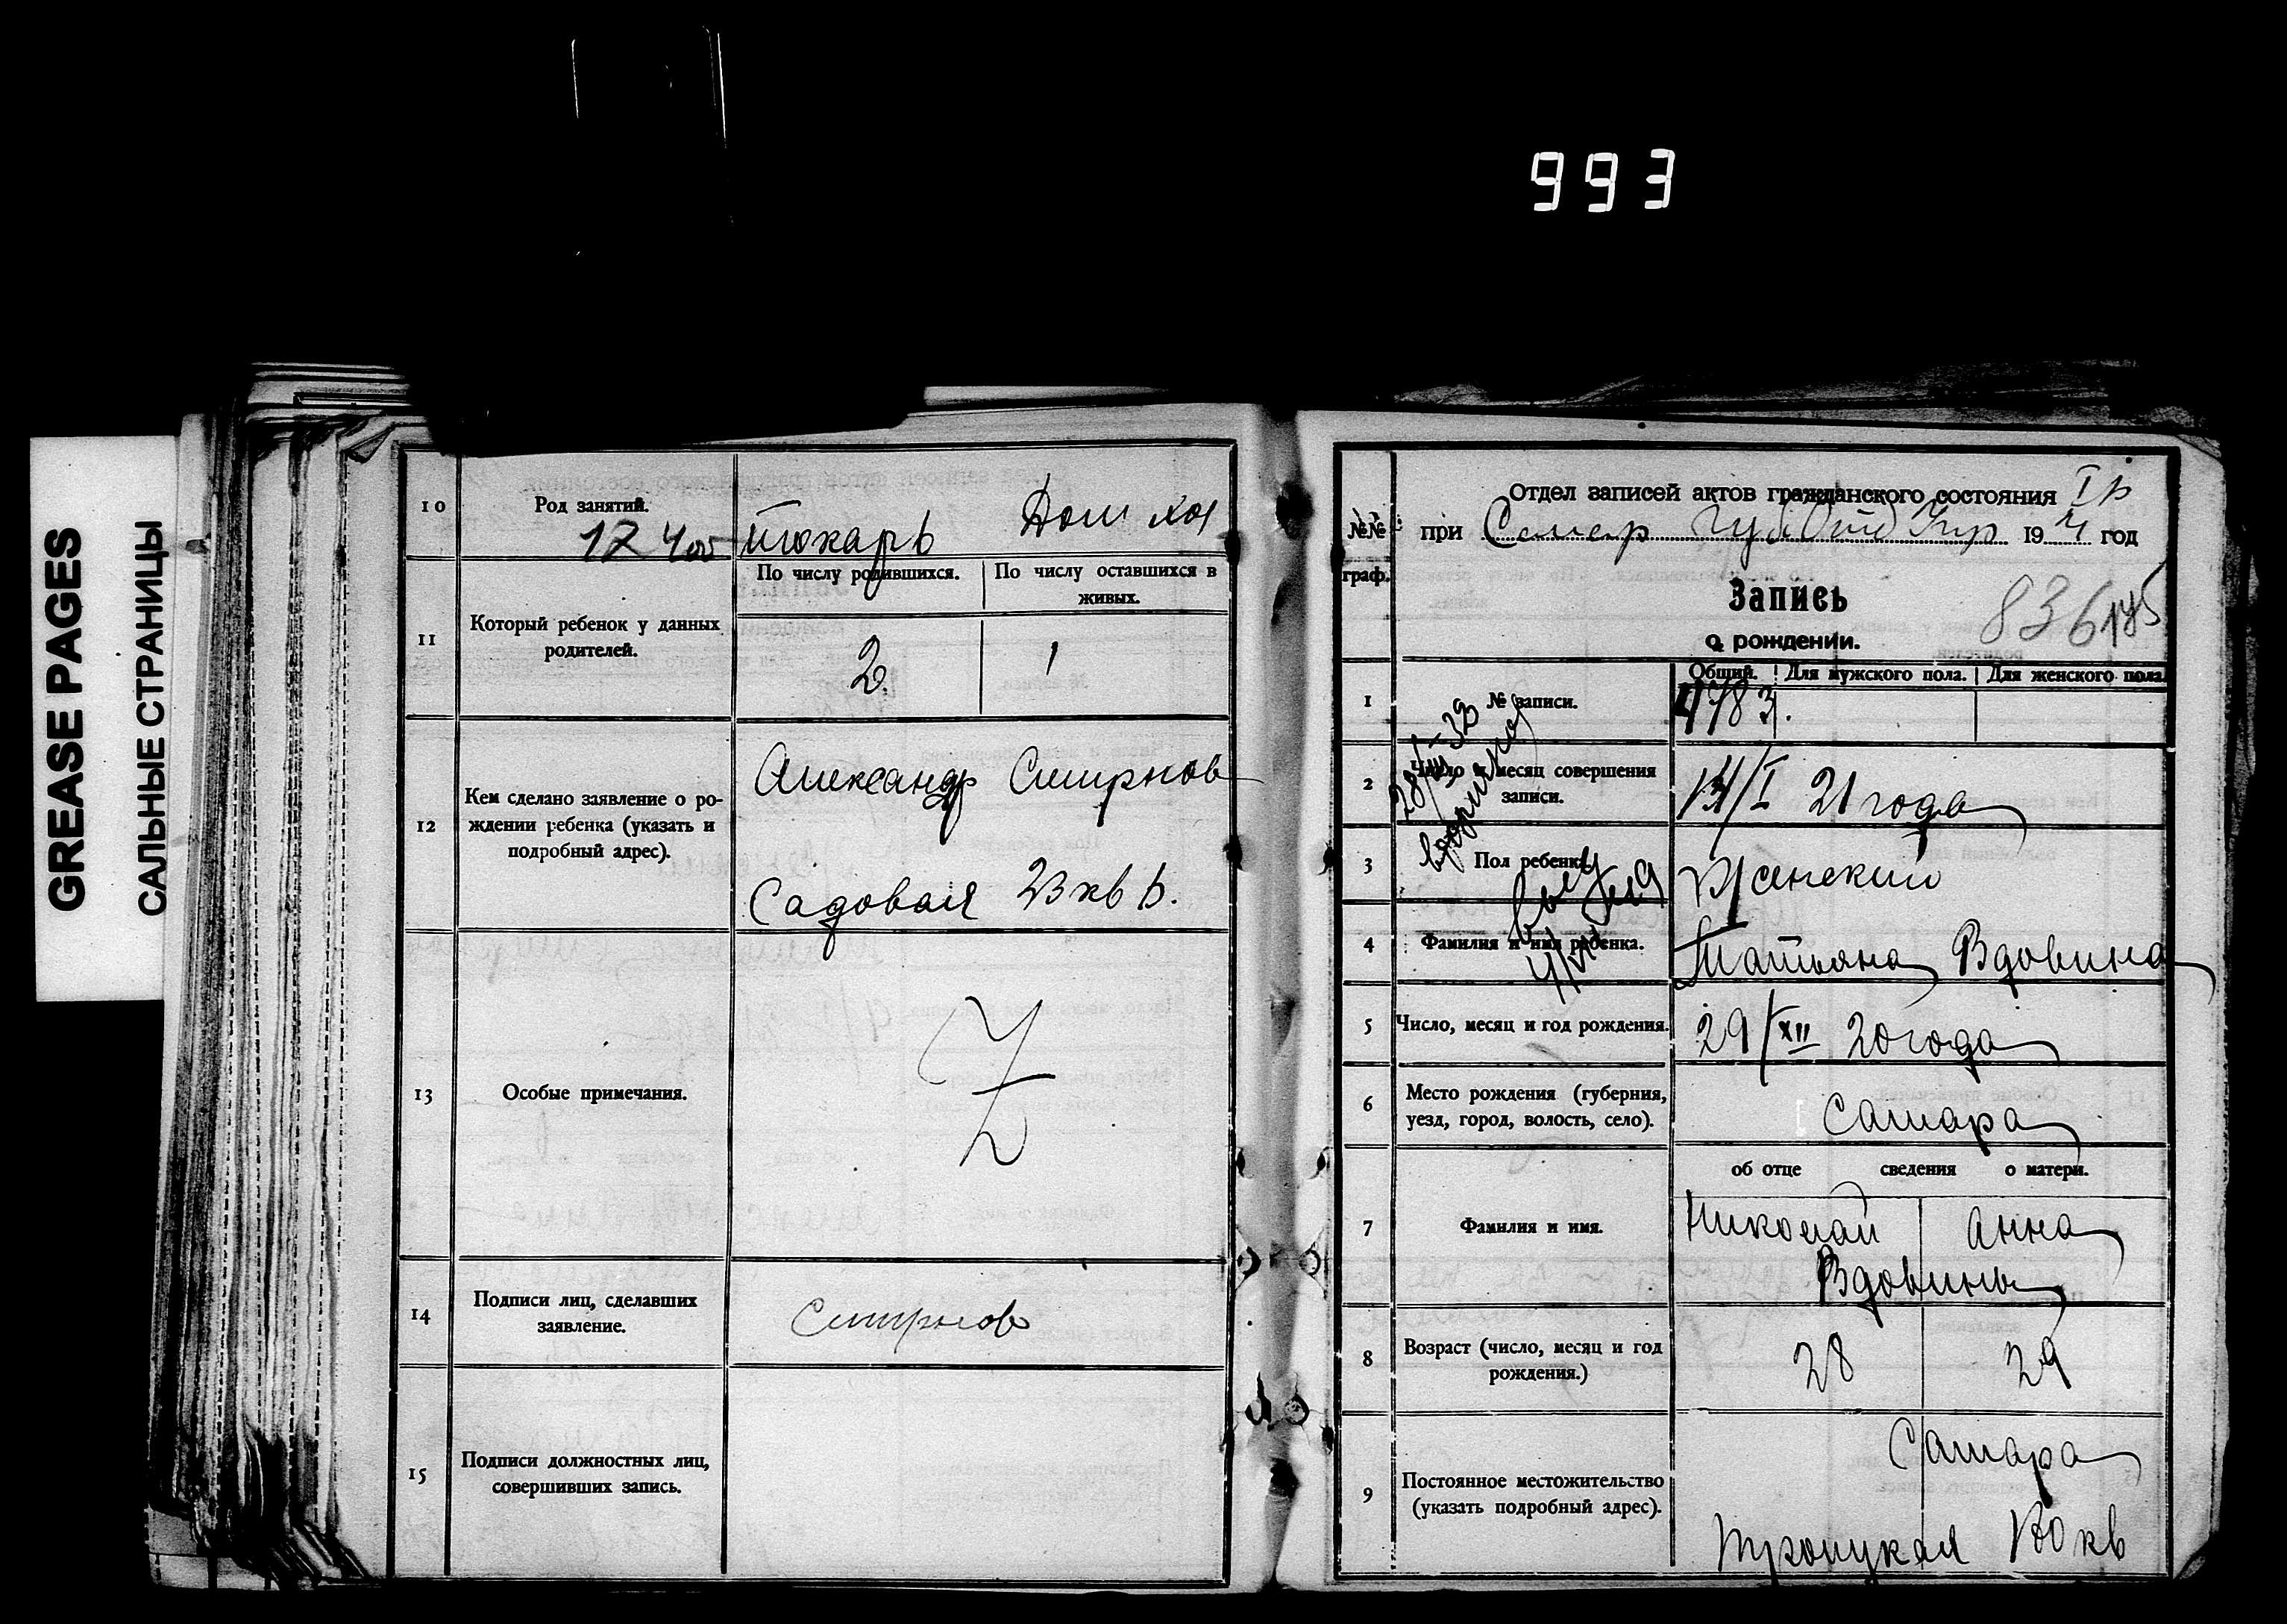 993
GREASE PAGES
САЛЬНЫЕ СТРАНИЦЫ
10
Род занятий.
токарь
Дом хоз
11
Который ребенок у данных
родителей.
По числу родившихся.
По числу оставшихся в
живых.
2
1
12
Кем сделано заявление о ро-
ждении ребенка (указать и
подробный адрес).
Александр Смирнов
Садовая 23 кв
13
Особые примечания.
14
Подписи лиц, сделавших
заявление.
Смирнов
15
Подписи должностных лиц,
совершивших запись.
Отдел записей актов гражданского состояния
№№
граф.
при Самар 19 год
Запись
о рождении.
836
1
№ записи.
Общий.
Для мужского пола.
Для женского пола.
2
Число и месяц совершения
записи.
21 года
3
Пол ребенка
Женский
4
Фамилия и имя ребенка.
Татьяна Вдовина
5
Число, месяц и год рождения.
29/XII 20 года
6
Место рождения (губерния,
уезд, город, волость, село).
Самара
об отце сведения о матери.
7
Фамилия и имя.
Николай Анна
Вдовины
8
Возраст (число, месяц и год
рождения.)
28
29
9
Постоянное местожительство
(указать подробный адрес).
Самара
Троицкая кв